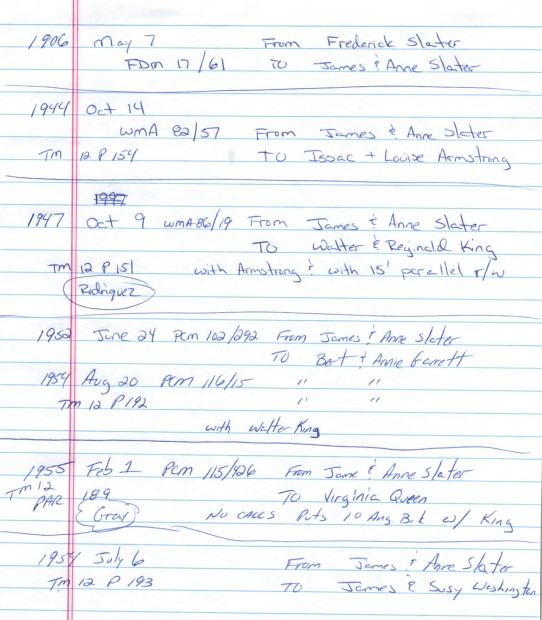 1906 May 7 From Frederick Slater
FDM 17/61 TO James & Anne Slater
1944 Oct 14
WMA 82/57 From James & Anne Slater
TM 12 P 154 TO Issac + Louise Armstrong
1997
1947 Oct 9 WMA86/19 From James & Anne Slater
TO Walter & Reginald King
TM 12 P 151 with Armstrong & with 15' parallel r/w
Rodriquez
1952 June 24 PCM 102/292 From James & Anne Slater
TO Bert & Annie Garrett
1954 Aug 20 PCM 116/15 " "
TM 12 P 192 " "
with Walter King
1955 Feb 1 PCM 115/426 From Jame & Anne Slater
TM 12
PAR 189 TO Virginia Queen
Gray NO CALLS Puts 1° Ang. w/ King
1954 July 6 From James & Anne Slater
TM 12 P 193 TO James & Susy Washington